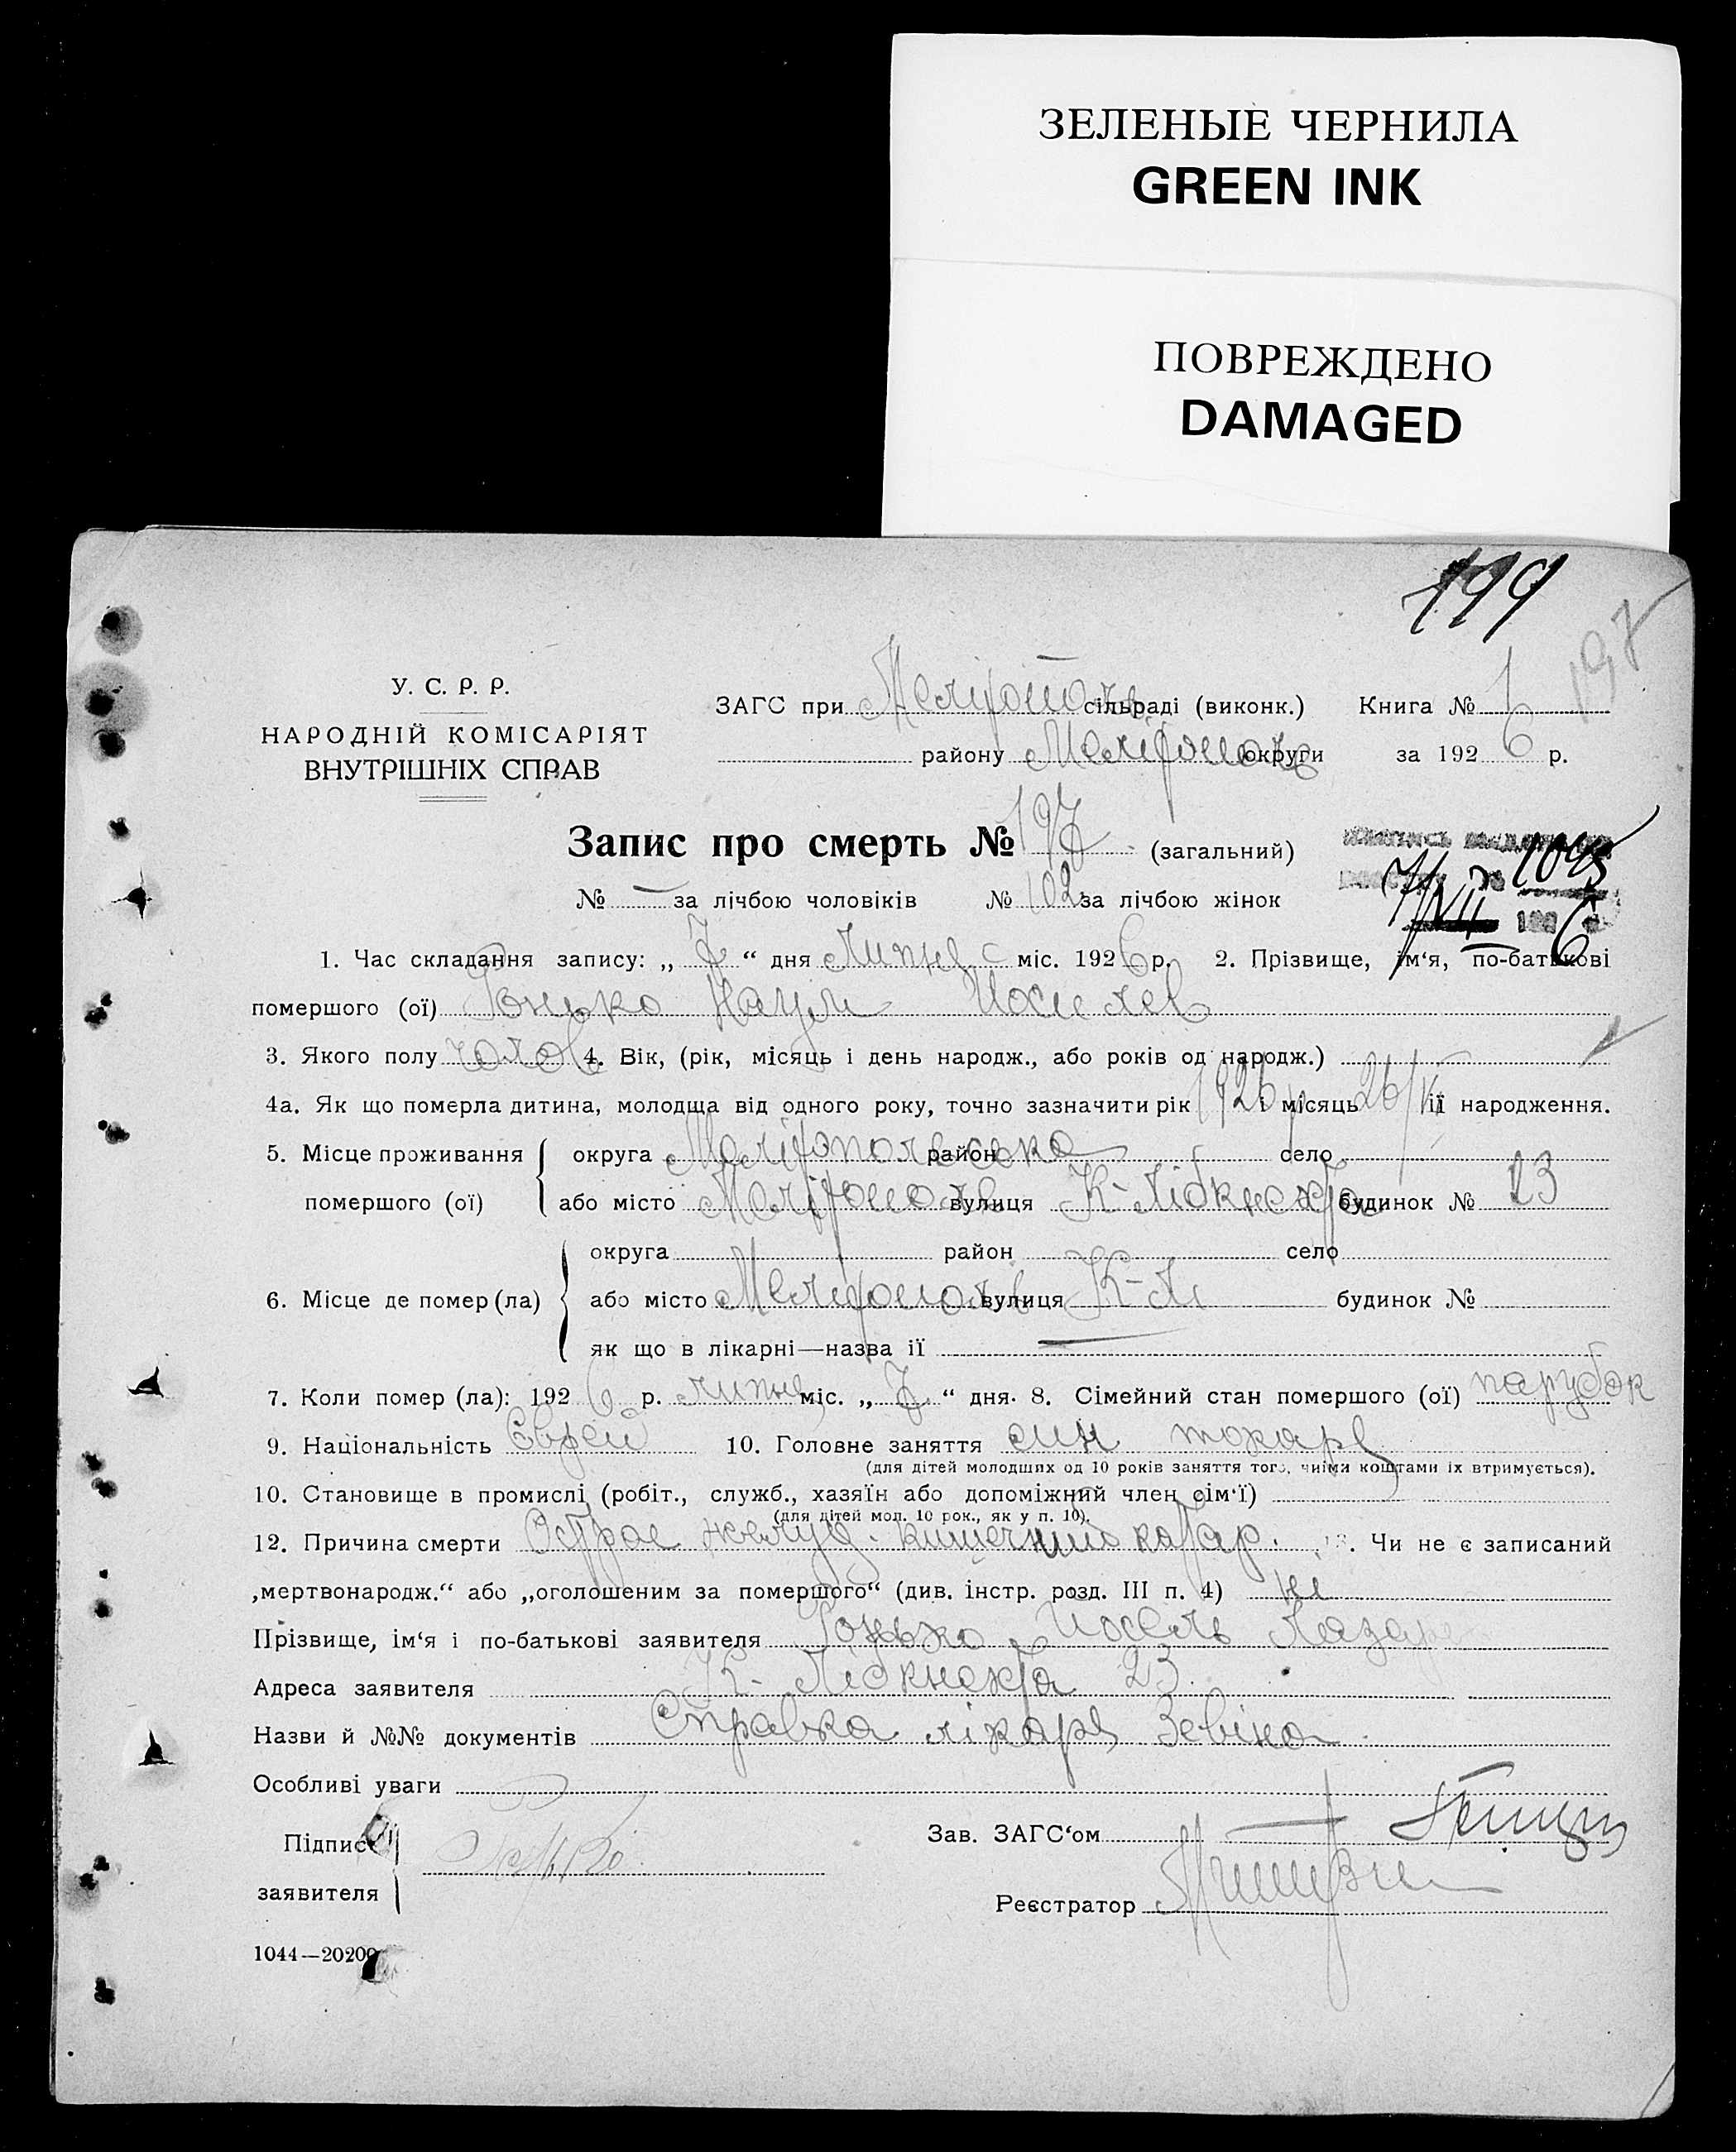 ЗЕЛЕНЫЕ ЧЕРНИЛА
GREEN INK
ПОВРЕЖДЕНО
DAMAGED
199
197
У. С. Р. Р.
НАРОДНІЙ КОМІСАРІЯТ
ВНУТРІШНІХ СПРАВ
ЗАГС при Меліtополь сільраді (виконк.) Книга № 1
району Меліtополь округи за 1926 р.
Запис про смерть № 197 (загальний)
№ — за лічбою чоловіків № 102 за лічбою жінок
1045
7/VII 1926
1. Час складання запису: „ 7 “ дня липня міс. 1926 р. 2. Прізвище, ім‘я, по-батькові
помершого (ої) Наум Иоселев
3. Якого полу чолов 4. Вік, (рік, місяць і день народж., або років од народж.)
4а. Як що померла дитина, молодща від одного року, точно зазначити рік 1926 р місяць 26/ ії народження.
5. Місце проживання округа Меліtопольська район село
помершого (ої) або місто Меліtополь вулиця К-Лібкнехtа будинок № 23
округа район село
6. Місце де помер (ла) або місто Меліtополь вулиця К-Лі будинок №
як що в лікарні—назва ії —
7. Коли помер (ла): 1926 р. липня міс. „ 7 “ дня. 8. Сімейний стан помершого (ої) парубок
9. Національність Єврей 10. Головне заняття син токаря
(для дітей молодших од 10 років заняття того, чиїми коштами їх втримується).
10. Становище в промислі (робіт., служб., хазяїн або допоміжний член сім‘ї)
(для дітей мол. 10 рок., як у п. 10).
12. Причина смерти Острое желуд. кишечний каtар. 13. Чи не є записаний
„мертвонародж.“ або „оголошеним за помершого“ (див. інстр. розд. III п. 4) ні
Прізвище, ім‘я і по-батькові заявителя Йосель Лазар
Адреса заявителя К- Лібкнехtа 23.
Назви й №№ документів Справка лікаря Зевіна
Особливі уваги
Підпис
заявителя
Зав. ЗАГС‘ом
Реєстратор
1044—20200